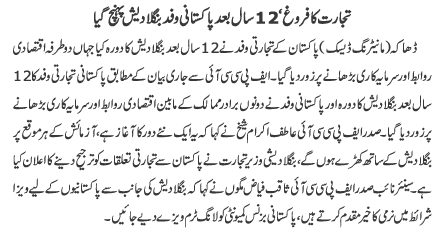 تجارت کا فروغ، 12 سال بعد پاکستانی وفد بنگلادیش پہنچ گیا
ڈھاکہ (مانیٹرنگ ڈیسک) پاکستان کے تجارتی وفد نے 12 سال بعد بنگلادیش کا دورہ کیا جہاں دو طرفہ اقتصادی
روابط اور سرمایہ کاری بڑھانے پر زور دیا گیا۔ ایف پی سی سی آئی سے جاری بیان کے مطابق پاکستانی تجارتی وفد کا 12
سال بعد بنگلادیش کا دورہ اور پاکستانی وفد نے دونوں برادر ممالک کے مابین اقتصادی روابط اور سرمایہ کاری بڑھانے
پر زور دیا گیا۔ صدر ایف پی سی سی آئی عاطف اکرام شیخ نے کہا کہ یہ ایک نئے دور کا آغاز ہے، آزمائش کے ہر موقع پر
بنگلادیش کے ساتھ کھڑے ہوں گے، بنگلادیشی وزیر تجارت نے پاکستان سے تجارتی تعلقات کو ترجیح دینے کا اعلان کیا
ہے۔ سینئر نائب صدر ایف پی سی سی آئی ثاقب فیاض مگوں نے کہا کہ بنگلادیش کی جانب سے پاکستانیوں کے لیے ویزا
شرائط میں نرمی کا خیر مقدم کرتے ہیں، پاکستانی بزنس کمیونٹی کو لانگ ٹرم ویزے دیے جائیں۔